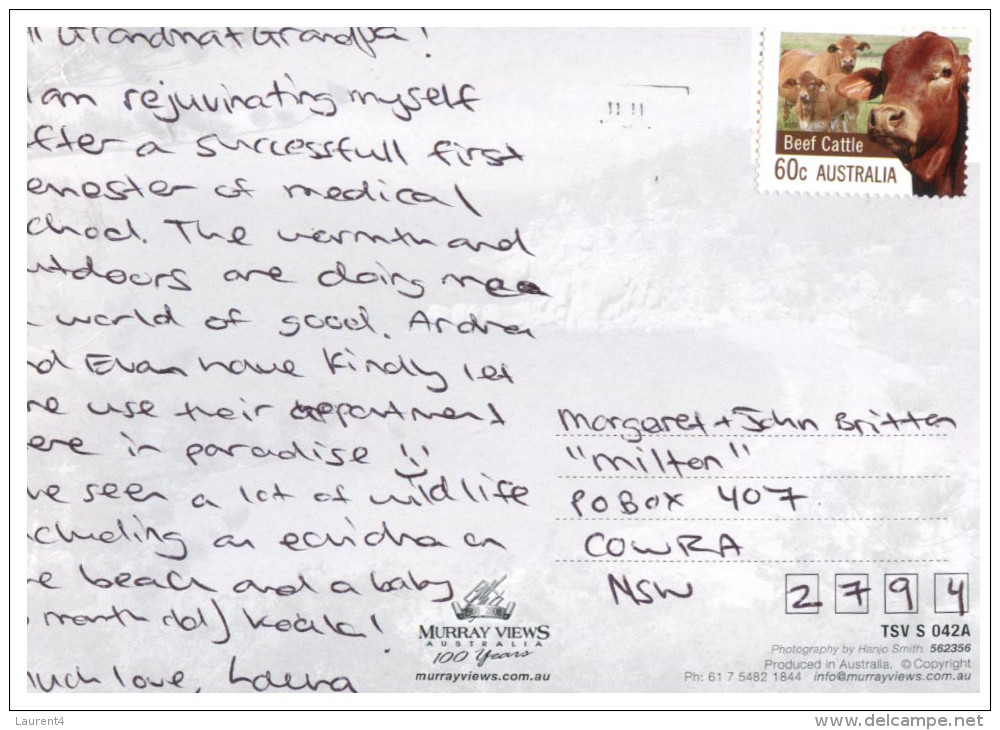 Grandma + Grandpa!
am rejuvinating myself
fter a successfull first
emester of medical
chool. The warmth and
utdoors are doing me
world of good. Ardra
d Evan have kindly let
me use their appartment
ere in paradise !!
ve seen a lot of wildlife
cluding an echidna on
e beach and a baby
month old) koala!
uch love,
Beef Cattle
60c AUSTRALIA
Margaret + John Britten
"Milton"
PO BOX 407
COWRA
NSW 2794
MURRAY VIEWS
AUSTRALIA
100 Years
murrayviews.com.au
TSV S 042A
Photography by Hanjo Smith. 562356
Produced in Australia. © Copyright
Ph: 61 7 5482 1844 info@murrayviews.com.au
Laurent4
www.delcampe.net